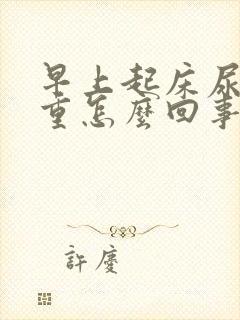 早上起床尿
重怎麼回事
許慶